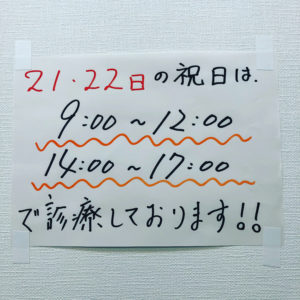 21・22日の祝日は.
9:00～12:00
14:00～17:00
で診療しております!!